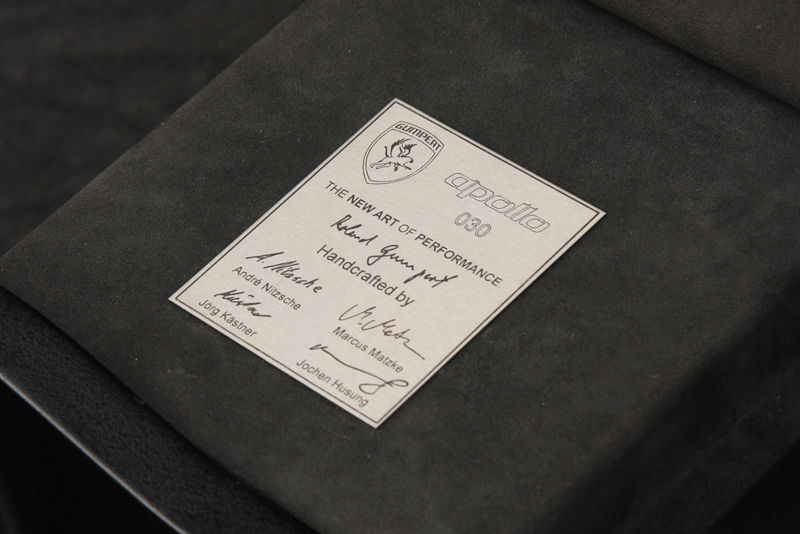 GUMPERT
apollo
030
THE NEW ART OF PERFORMANCE
Roland Gumpert
Handcrafted by
A. Nitzsche
André Nitzsche
M. Matzke
Marcus Matzke
Kästner
Jörg Kästner
Jochen Husung